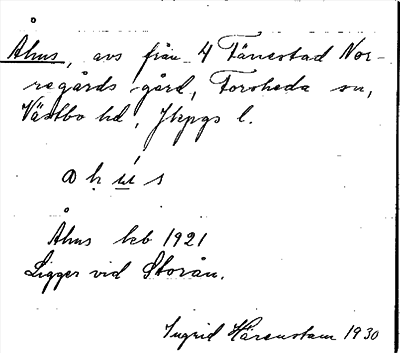 Åhus, avs från 4 Tånestad Nor-
regårds gård, Forsheda sn,
Västbo hd, Jkpgs l.
a h u s
Åhus beb 1921
Ligger vid Storån.
Ingrid Härenstam 1930